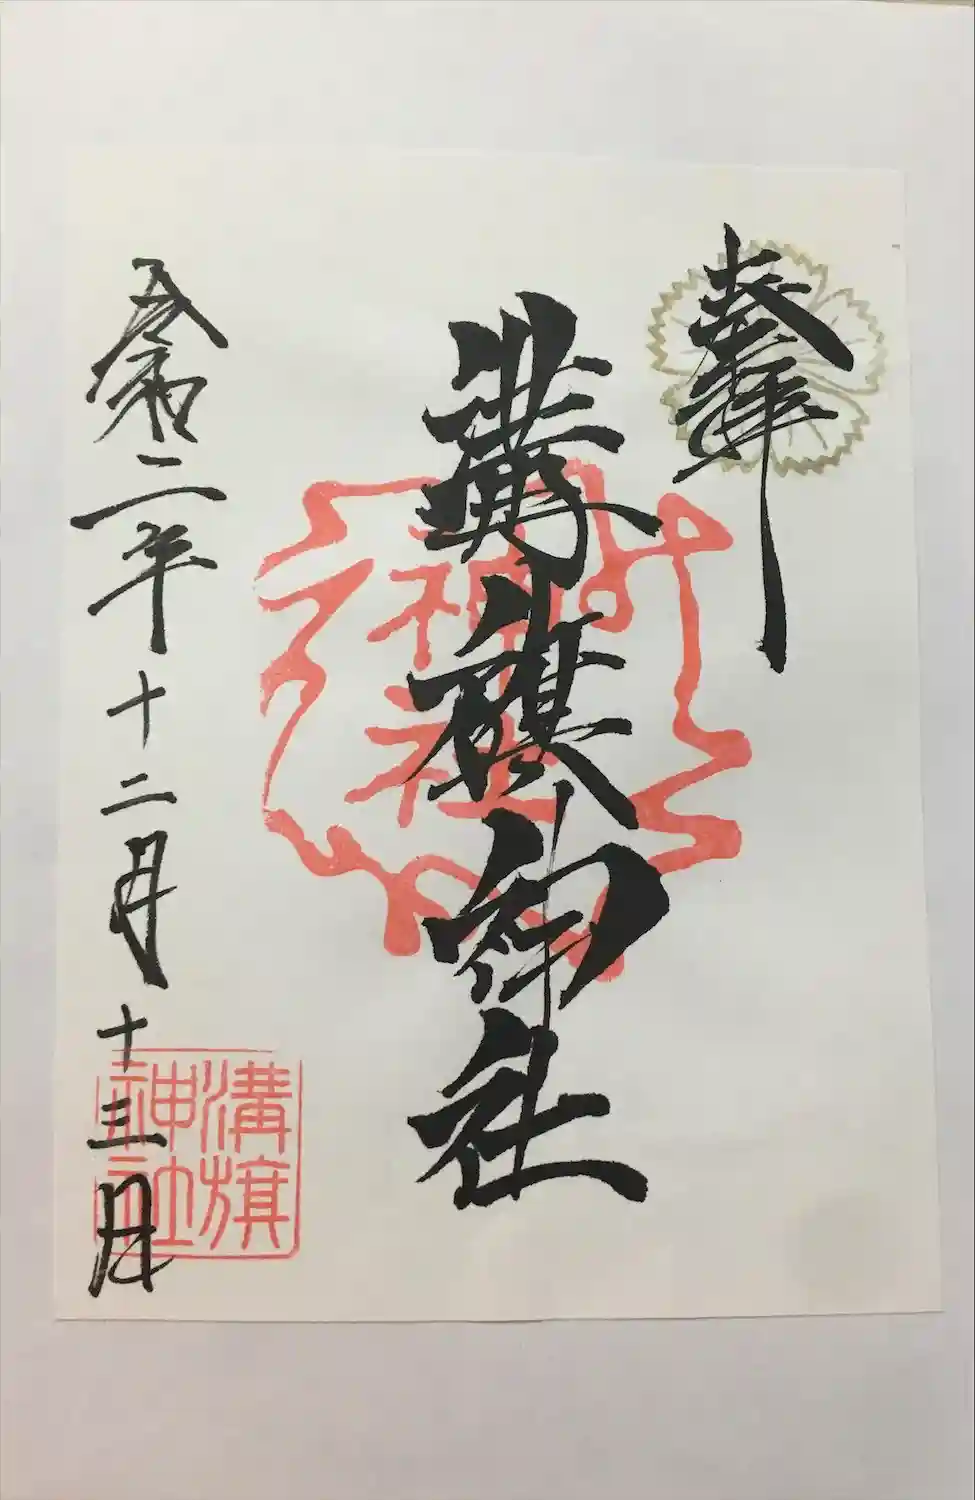 奉拝
溝旗神社
令和二年十二月十三日
神社
溝旗
神社